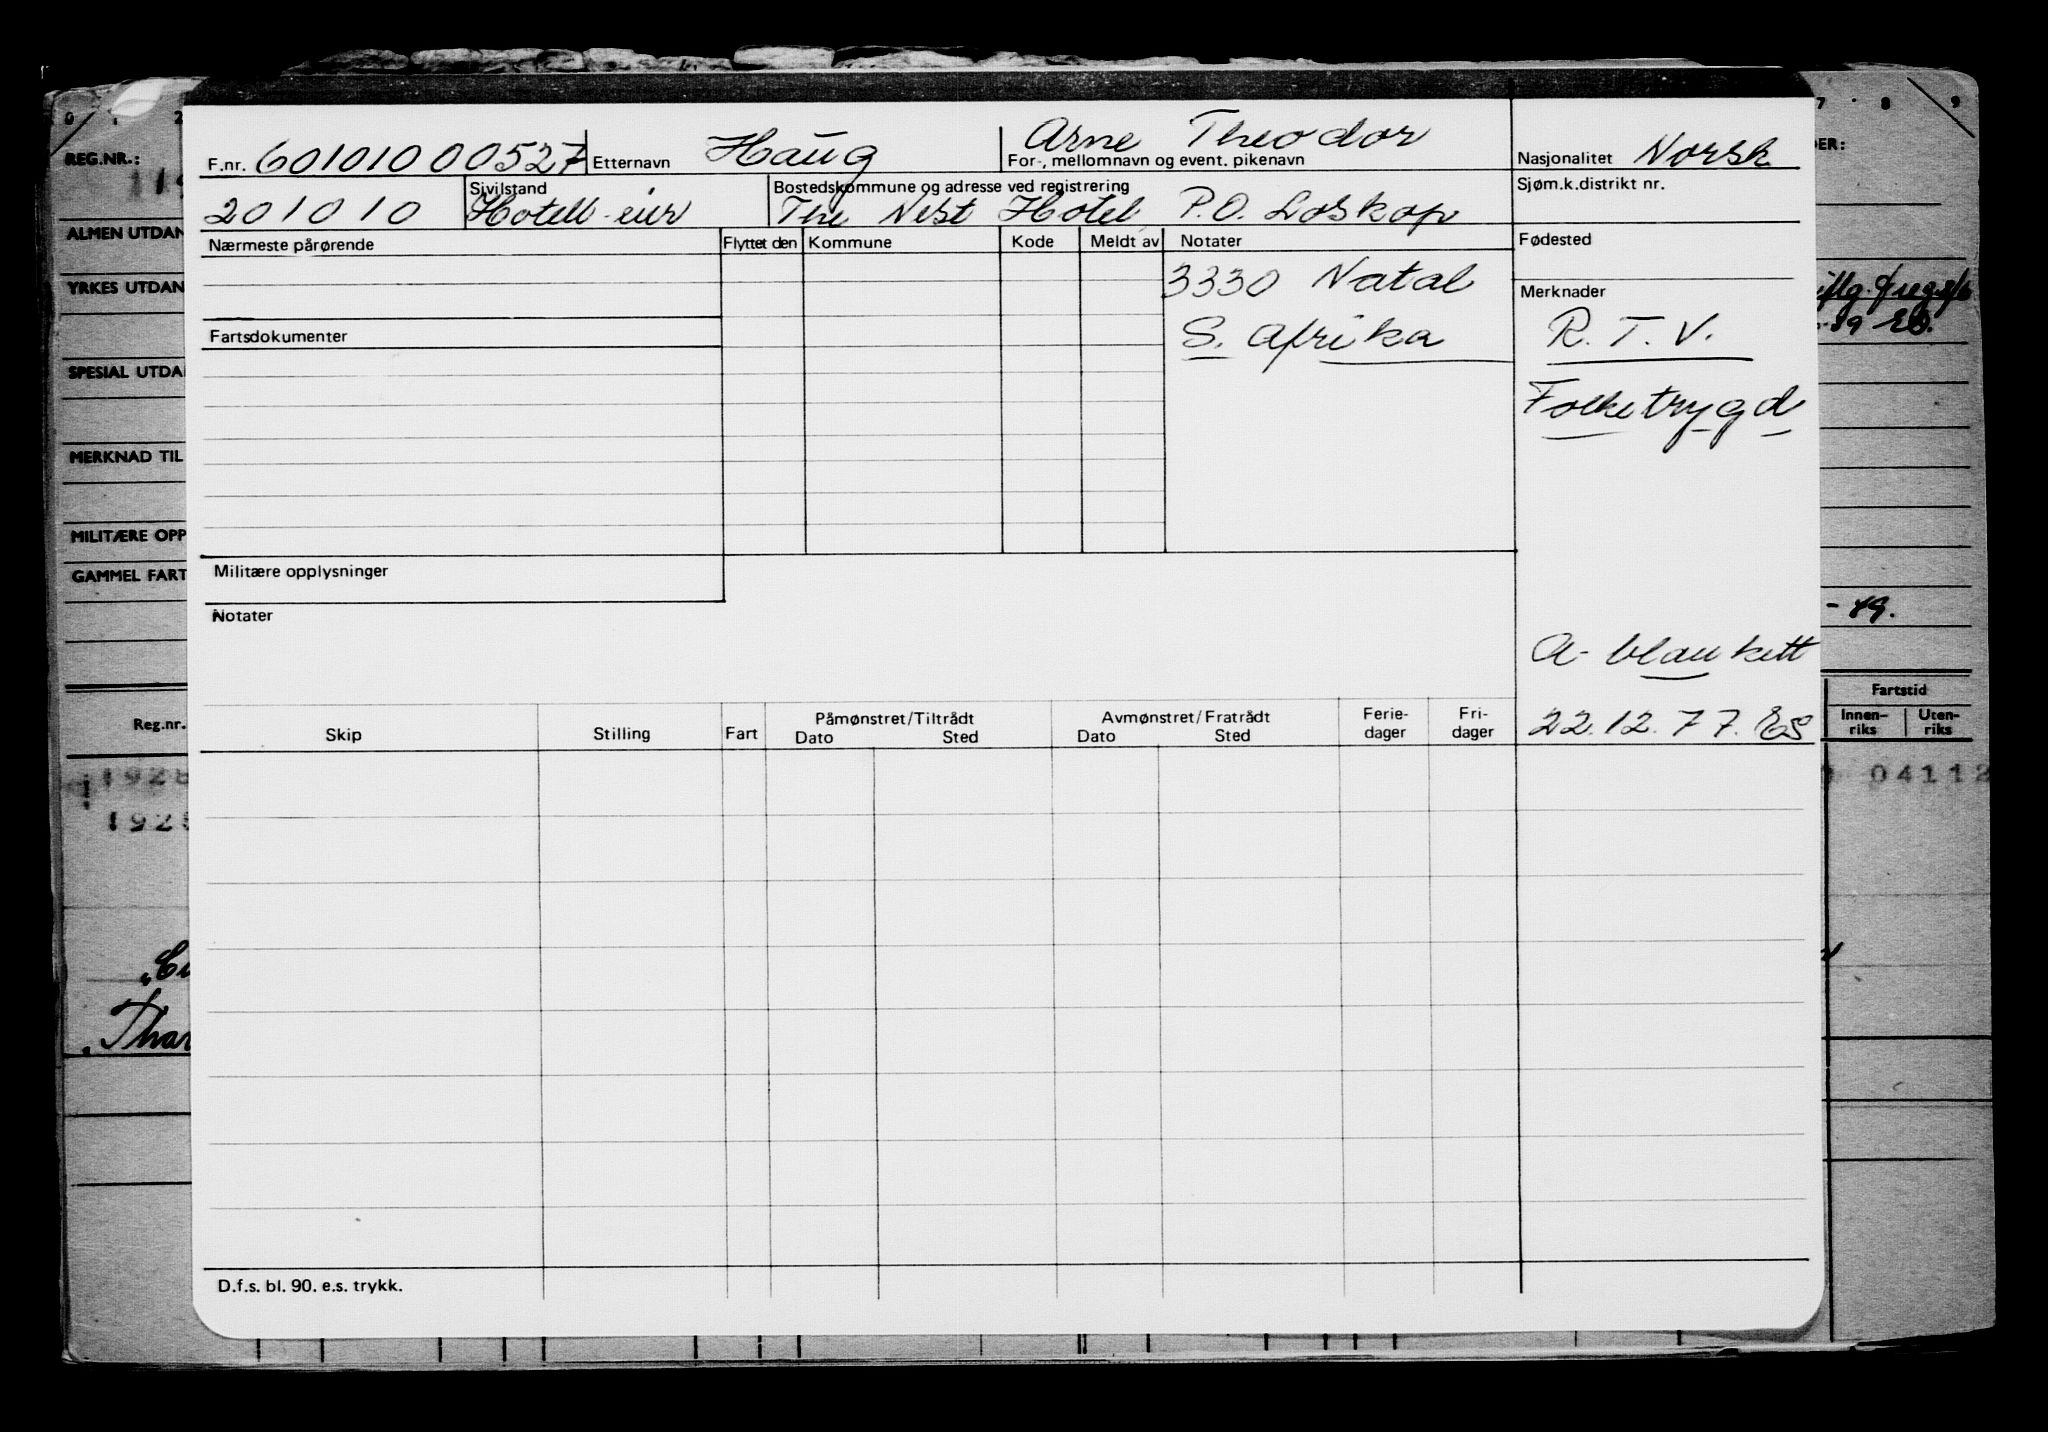 0 1 2 7 8 9
REG.NR.:
DER:
F.nr. 60101000527 Etternavn Haug Arne Theodor
For-, mellomnavn og event. pikenavn
Nasjonalitet Norsk
201010 Sivilstand Hotell-eier
Bostedskommune og adresse ved registrering
The Nest Hotel P.O. Loskop
Sjøm.k.distrikt nr.
ALMEN UTDAN
Nærmeste pårørende Flyttet den Kommune Kode Meldt av Notater Fødested
3330 Natal
S. Afrika
Merknader
R. T. V.
Folketrygd
YRKES UTDAN
Fartsdokumenter
SPESIAL UTDA
MERKNAD TIL
MILITÆRE OPP
GAMMEL FART
Militære opplysninger
Notater
- 49.
A-blankett
22.12.77.
Fartstid
Innen-riks Uten-riks
Reg.nr.
Skip Stilling Fart Påmønstret/Tiltrådt Avmønstret/Fratrådt Ferie-dager Fri-dager
Dato Sted Dato Sted
1928
04112
192
Thar
D.f.s. bl. 90. e.s. trykk.